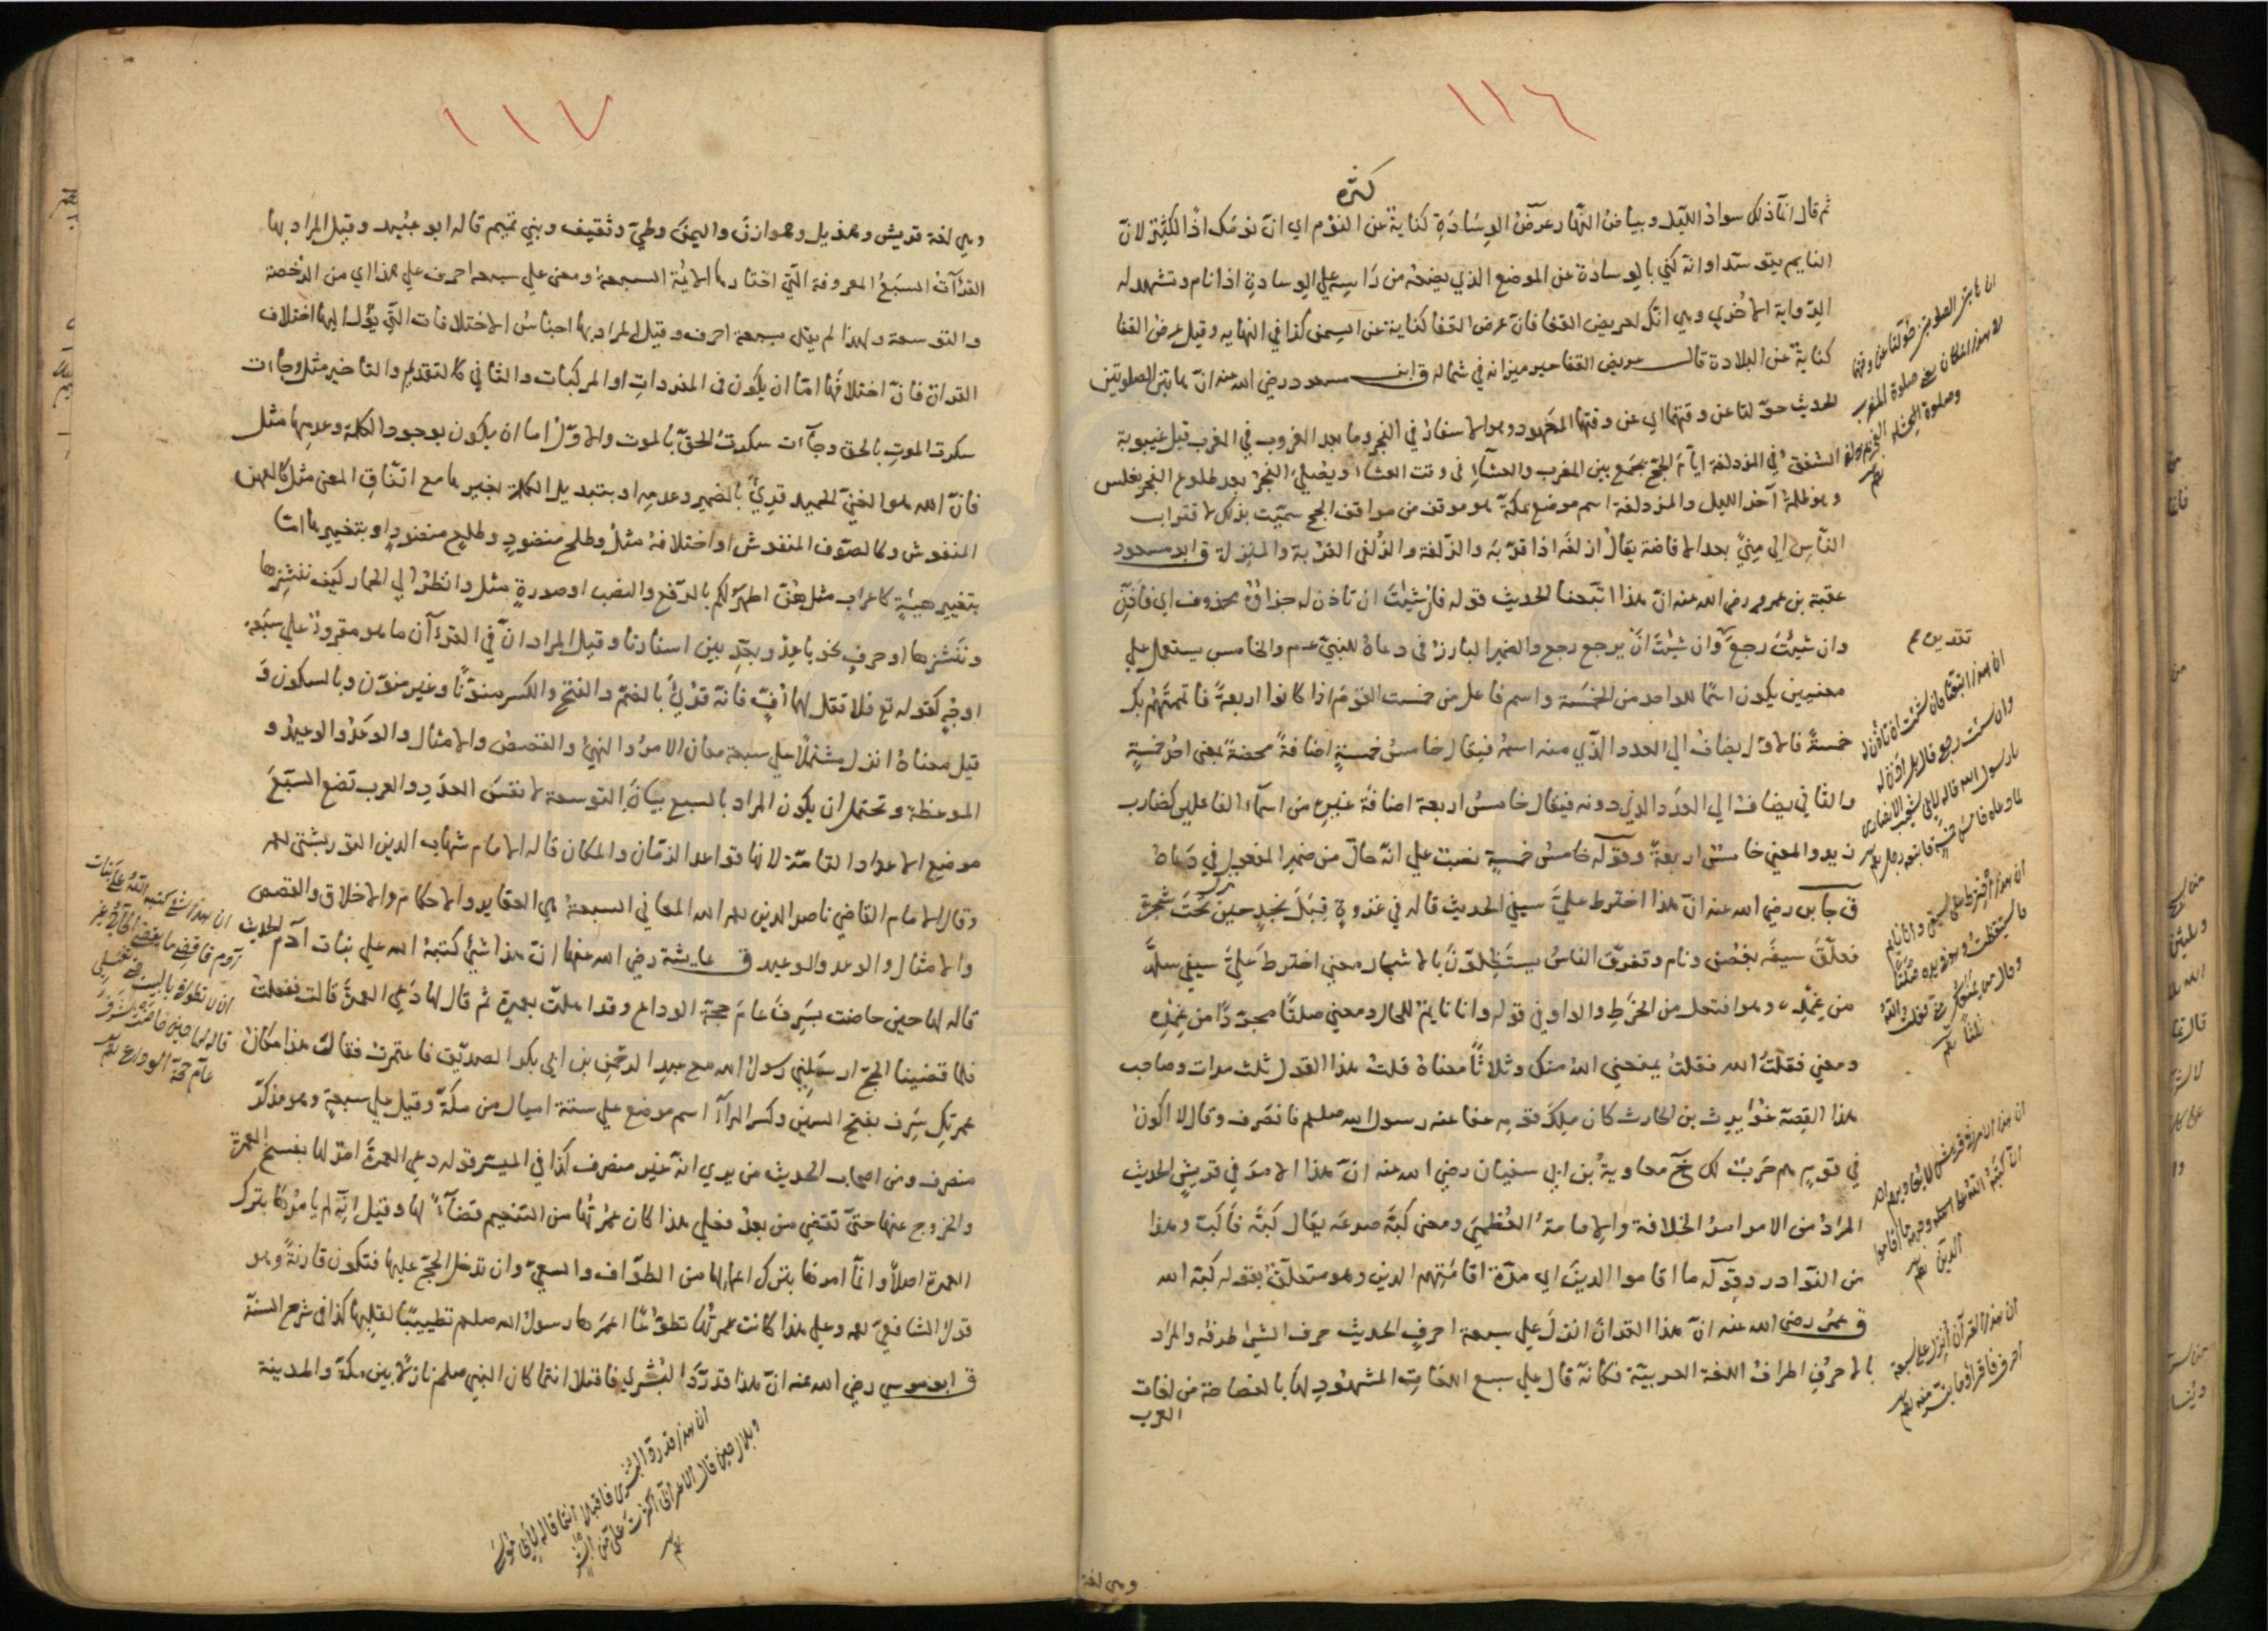 ١١٦
كثره
ثم قال انما ذلك سواد الليل وبياض النهار عرض الوسادة كناية عن النوم اي ان نومك اذا لكثير لان
النايم يتوسد او انه كني بالوسادة عن الموضع الذي يضعه من راسه علي الوسادة اذا نام وتشهد له
الرواية الاخري وهي انك لعريض القفا فان عرض القفا كناية عن السمن كذا في النهايه وقيل عرض القفا
كناية عن البلادة قال عريض القفا ميزانه في شماله ق ابن مسعود رضي الله عنه ان هاتين الصلوتين
الحديث حولتا عن وقتهما اي عن وقتهما المعهود وهو الاسفار في الفجر وما بعد الغروب في المغرب قبل غيبوبة
الشفق في المزدلفة ايام الحج يجمع بين المغرب والعشاء في وقت العشاء ويصلي الفجر بعد طلوع الفجر بغلس
وهو ظلمة آخر الليل والمزدلفة اسم موضع بمكة هو موقف من مواقف الحج سميت بذلك لاقتراب
الناس الي مني بعد الافاضة يقال ازلفه اذا قربه والزلفة والزلفي القربة والمنزلة ق ابو مسعود
عقبة بن عمرو رضي الله عنه ان هذا اتبعنا الحديث قوله فان شئت ان تاذن له جزاؤه محذوف اي فأذن
وان شئت رجع وان شئت ان يرجع رجع والضمير البارز في دعاه للنبي عم والخامس يستعمل علي
معنيين يكون اسما للواحد من الخمسة واسم فاعل من خمست القوم اذا كانوا اربعة فاتممتهم بك
خمسة فالاول يضاف الي العدد الذي منه اسمه فيقال خامس خمسة اضافة محضة بمعني احد خمسة
والثاني يضاف الي العدد الذي دونه فيقال خامس اربعة اضافة غيره من اسماء الفاعلين كضارب
زيد والمعني خامس اربعة وقوله خامس خمسة نصب علي انه حال من ضمير المفعول في دعاه
ق جابر رضي الله عنه ان هذا اخترط علي سيفي الحديث قاله في غزوة قبل نجد حين نزل تحت شجرة
فعلق سيفه بغصن ونام وتفرق الناس يستظلون بالاشجار معني اخترط علي سيفي سله
من غمده وهو افتعل من الخرط والواو في قوله وانا نايم للحال ومعني صلتا مجردا من غمده
ومعني فقلت الله فقلت يمنعني الله منك وثلاثا معناه قلت هذا القول ثلث مرات وصاحب
هذا القصة غويرث بن الحارث كان ملك قومه عفا عنه رسول الله صلعم فانصرف وقال لا اكون
في قوم هم حرب لك خ معاوية بن ابي سفيان رضي الله عنه ان هذا الامر في قريش الحديث
المراد من الامر امر الخلافة والامامة العظمي ومعني كبه صرعه يقال كبه فاكب وهذا
من النوادر وقوله ما اقاموا الدين اي مدة اقامتهم الدين وهو متعلق بقوله كبه الله
ق عمر رضي الله عنه ان هذا القران انزل علي سبعة احرف الحديث حرف الشئ طرفه والمراد
بالاحرف اطراف اللغة العربية فكانه قال علي سبع اللغات المشهود لها بالفصاحة من لغات
العرب
وهي لغة
ان هاتين الصلوتين حولتا عن وقتهما
في هذا المكان يعني صلوة المغرب
وصلوة العشاء
ان هذا اتبعنا فان شئت ان تأذن له
وان شئت رجع قال بل اذن له
يا رسول الله قاله لابي شعيب الانصاري
ان هذا اخترط علي سيفي وانا نايم
فاستيقظت وهو في يده صلتا
ان هذا الامر في قريش لا يعاديهم احد
الا كبه الله علي وجهه ما اقاموا
الدين
ان هذا القرآن انزل علي سبعة
احرف فاقرأوا ما تيسر منه
١١٧
وهي لغة قريش وهذيل وهوازن واليمن وطي وثقيف وبني تميم قاله ابو عبيد وقيل المراد بها
القراآت السبع المعروفة التي اختارها الائمة السبعة ومعني علي سبعه احرف علي هذا اي من الرخصة
والتوسعة ولهذا لم يقل بسبعة احرف وقيل المراد بها اجناس الاختلافات التي يؤل اليها اختلاف
القران فان اختلافها اما ان يكون في المفردات او المركبات والثاني كالتقديم والتاخير مثل وجاءت
سكرت الموت بالحق وجاءت سكرت الحق بالموت والاول اما ان يكون بوجود الكلمة وعدمها مثل
فان الله هو الغني الحميد قرئ بالضمير وعدمه او بتبديل الكلمة بغيرها مع اتفاق المعني مثل كالعهن
المنفوش وكالصوف المنفوش او اختلافه مثل وطلح منضود وطلع منضود او بتغييرها اما
بتغيير هيئة كاعراب مثل هن اطهر لكم بالرفع والنصب او صورة مثل وانظر الي الحمار كيف ننشزها
وننشرها او حرف نحو باعد وبعد بين اسفارنا وقيل المراد ان في القرآن ما هو مقروء علي سبعة
اوجه كقوله تع فلا تقل لهما اف فانه قرئ بالضم والفتح والكسر منونا وغير منون وبالسكون و
قيل معناه انزل مشتملا علي سبعة معان الامر والنهي والقصص والامثال والوعد والوعيد و
الموعظة وتحتمل ان يكون المراد بالسبع بيان التوسعة لا نفس العدد والعرب تضع السبع
موضع الاعداد التامة لانها قواعد الزمان والمكان قاله الامام شهاب الدين التوربشتي
وقال الامام القاضي ناصر الدين المعاني السبعة هي العقايد والاحكام والاخلاق والقصص
والامثال والوعد والوعيد ق عايشة رضي الله عنها ان هذا شيئ كتبه الله علي بنات آدم الحديث
قاله لها حين حاضت بسرف عام حجة الوداع وقد اهلت بعمرة ثم قال لها دعي العمرة قالت ففعلت
فلما قضينا الحج ارسلني رسول الله مع عبد الرحمن بن ابي بكر الصديق فاعتمرت فقال هذا مكان
عمرتك سرف بفتح السين وكسر الراء اسم موضع علي ستة اميال من مكة وقيل علي سبعة وهو مذكر
منصرف ومن اصحاب الحديث من يري انه غير منصرف كذا في الميسر قوله دعي العمرة امر لها بفسخ العمرة
والخروج عنها حتي تقضي من بعد فعلي هذا كان عمرتها من التنعيم قضاء لها وقيل انه لم يامرها بترك
العمرة اصلا وانما امرها بترك اعمالها من الطواف والسعي وان تدخل الحج عليها فتكون قارنة وهو
قول الشافعي وعلي هذا كانت عمرتها تطوعا اعمرها رسول الله صلعم تطييبا لقلبها كذا في شرح السنة
ق ابو موسي رضي الله عنه ان هذا قد رد البشري فاقبلا انتما كان النبي صلعم نازلا بين مكة والمدينة
ان هذا شئ كتبه الله علي بنات
آدم فاقضي ما يقضي الحاج غير
ان لا تطوفي بالبيت حتي تغتسلي
قاله لها حين حاضت بسرف
عام حجة الوداع
ان هذا قد رد البشري فاقبلا انتما قاله لابي موسي
وبلال حين قال الاعرابي اكثرت علي من ابشر